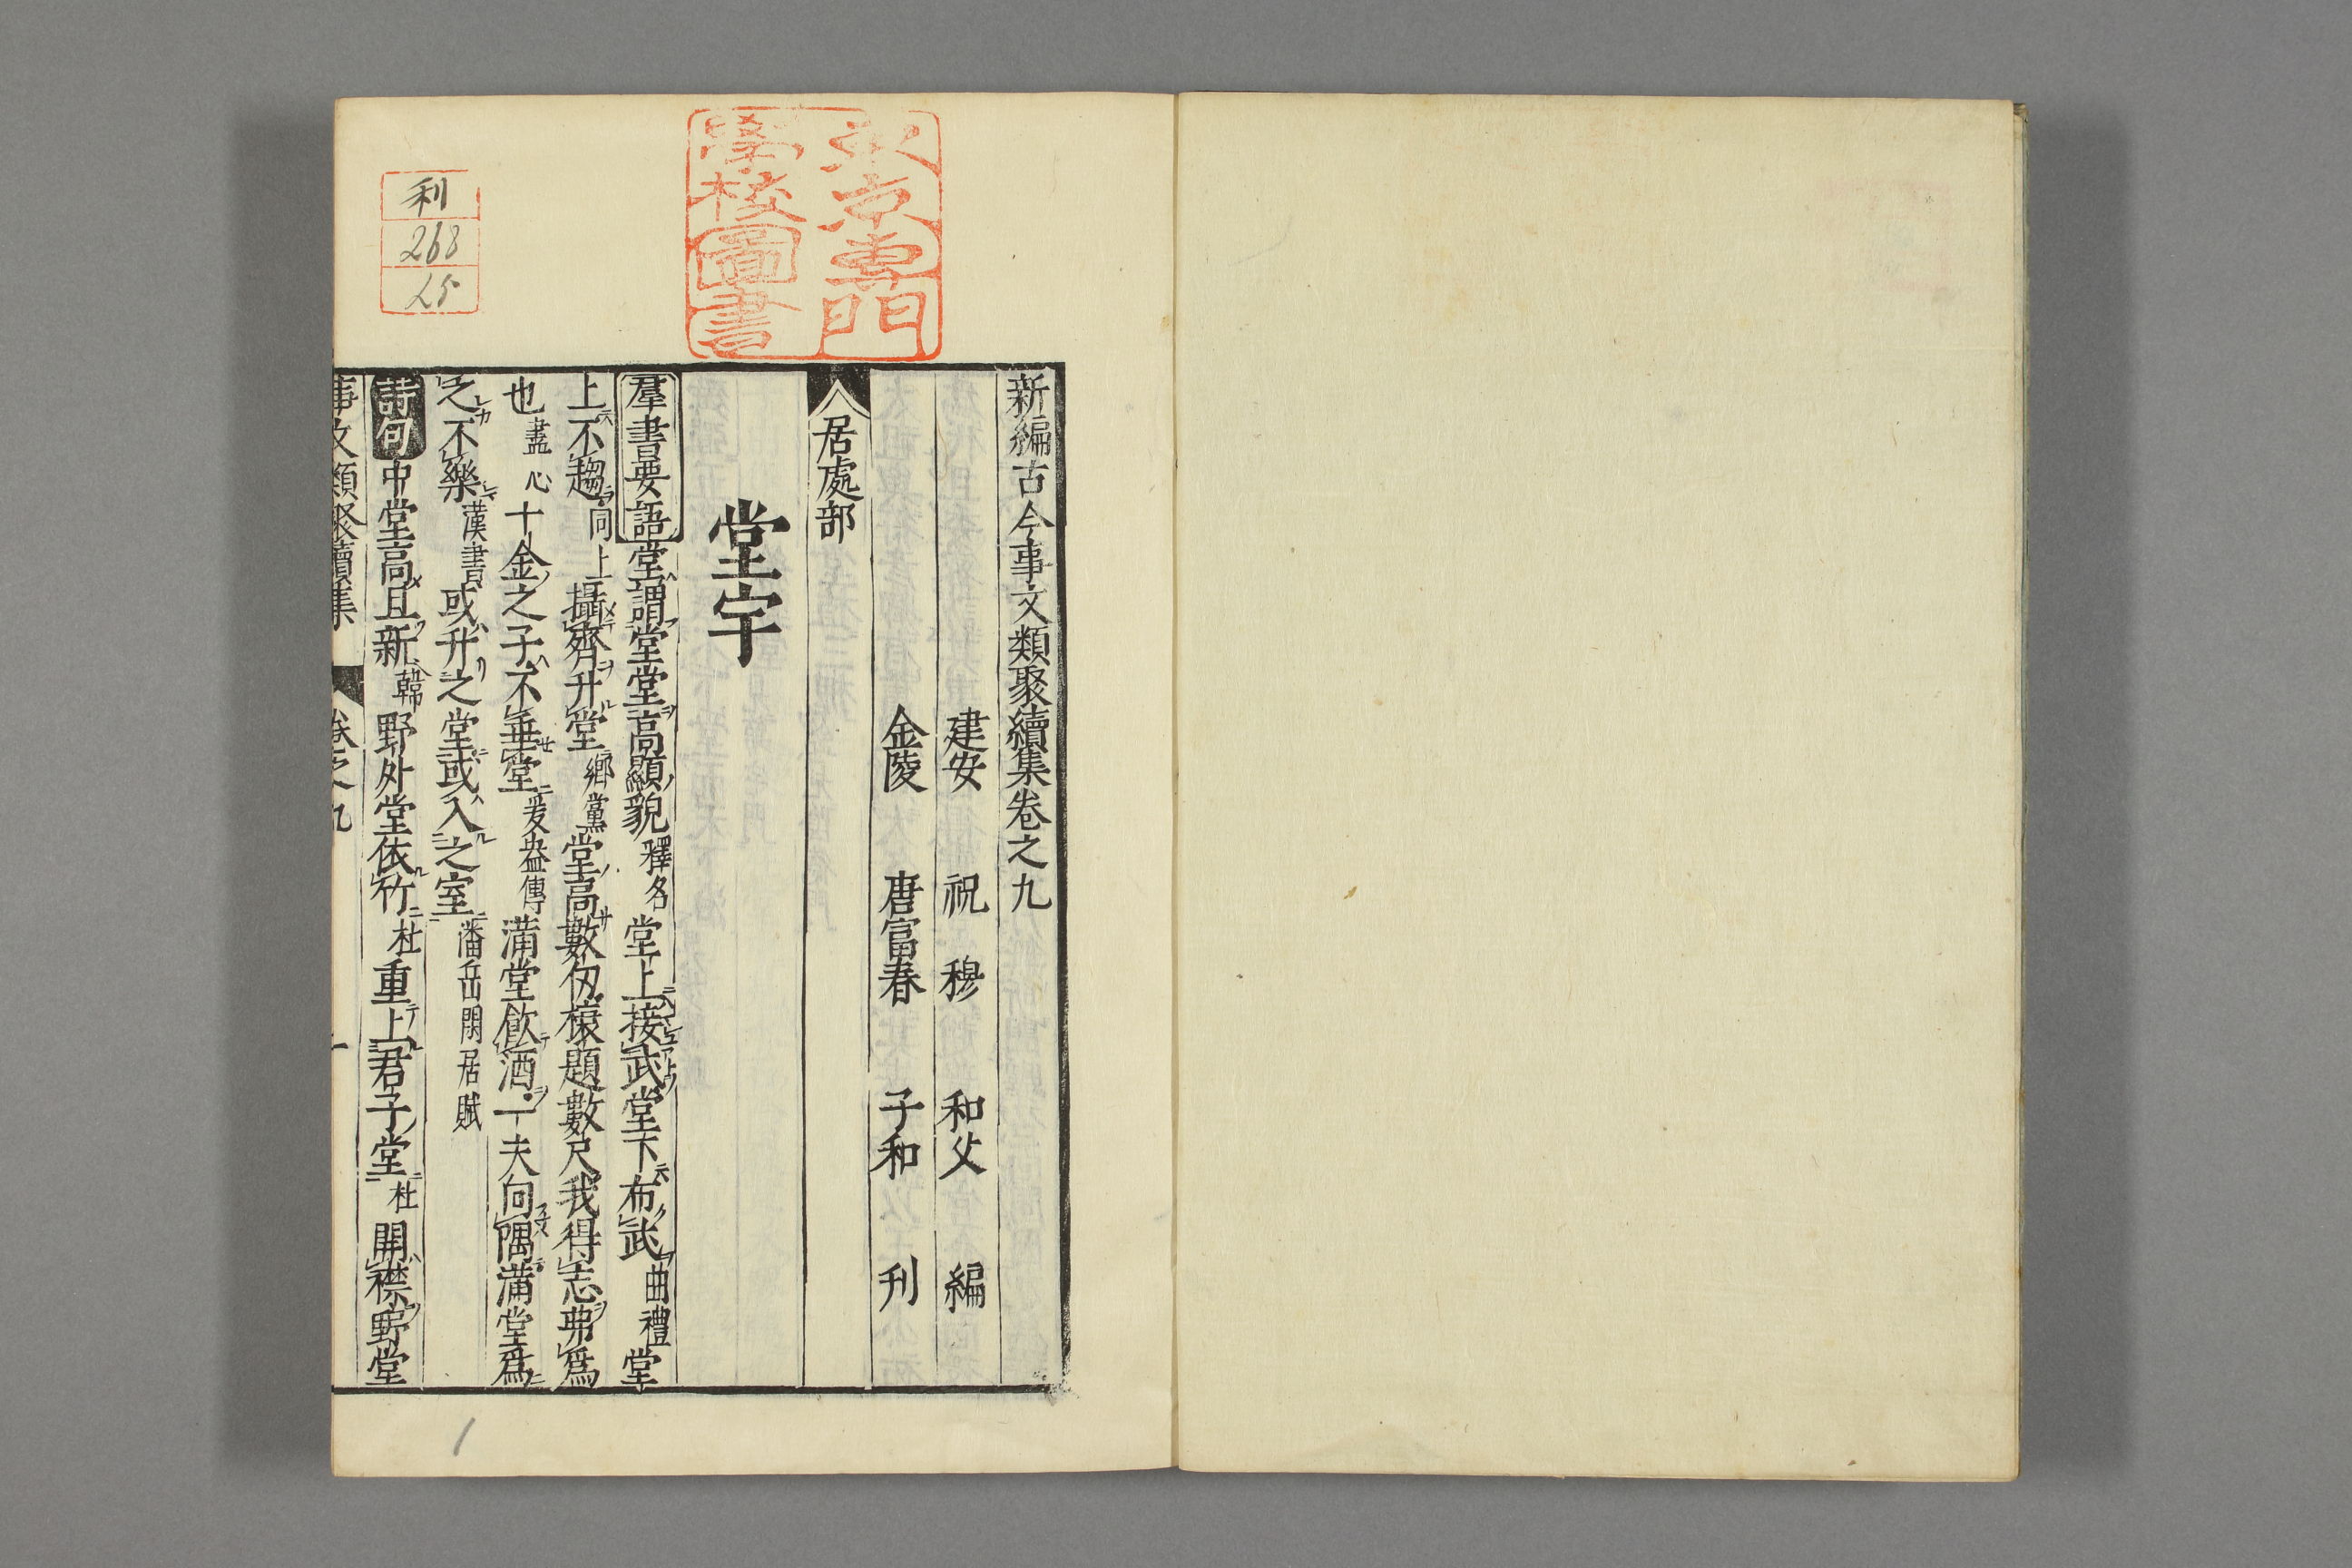 新編古今事文類聚續集卷之九
建安 祝 穆 和父 編
金陵 唐富春 子和 刊
居處部
堂宇
羣書要語堂謂堂堂高顯貌釋名堂上接武堂下布武曲禮堂
上不趨同上攝齊升堂鄉黨堂高數仞榱題數尺我得志弗爲
也盡心十金之子不垂堂爰盎傳滿堂飲酒一夫向隅滿堂爲
之不樂漢書或升之堂或入之室潘岳閑居賦
詩句中堂高且新韓野外堂依竹杜重上君子堂杜開襟野堂
事文類聚續集 卷之九 一
東京專門
學校圖書
利
268
25
1